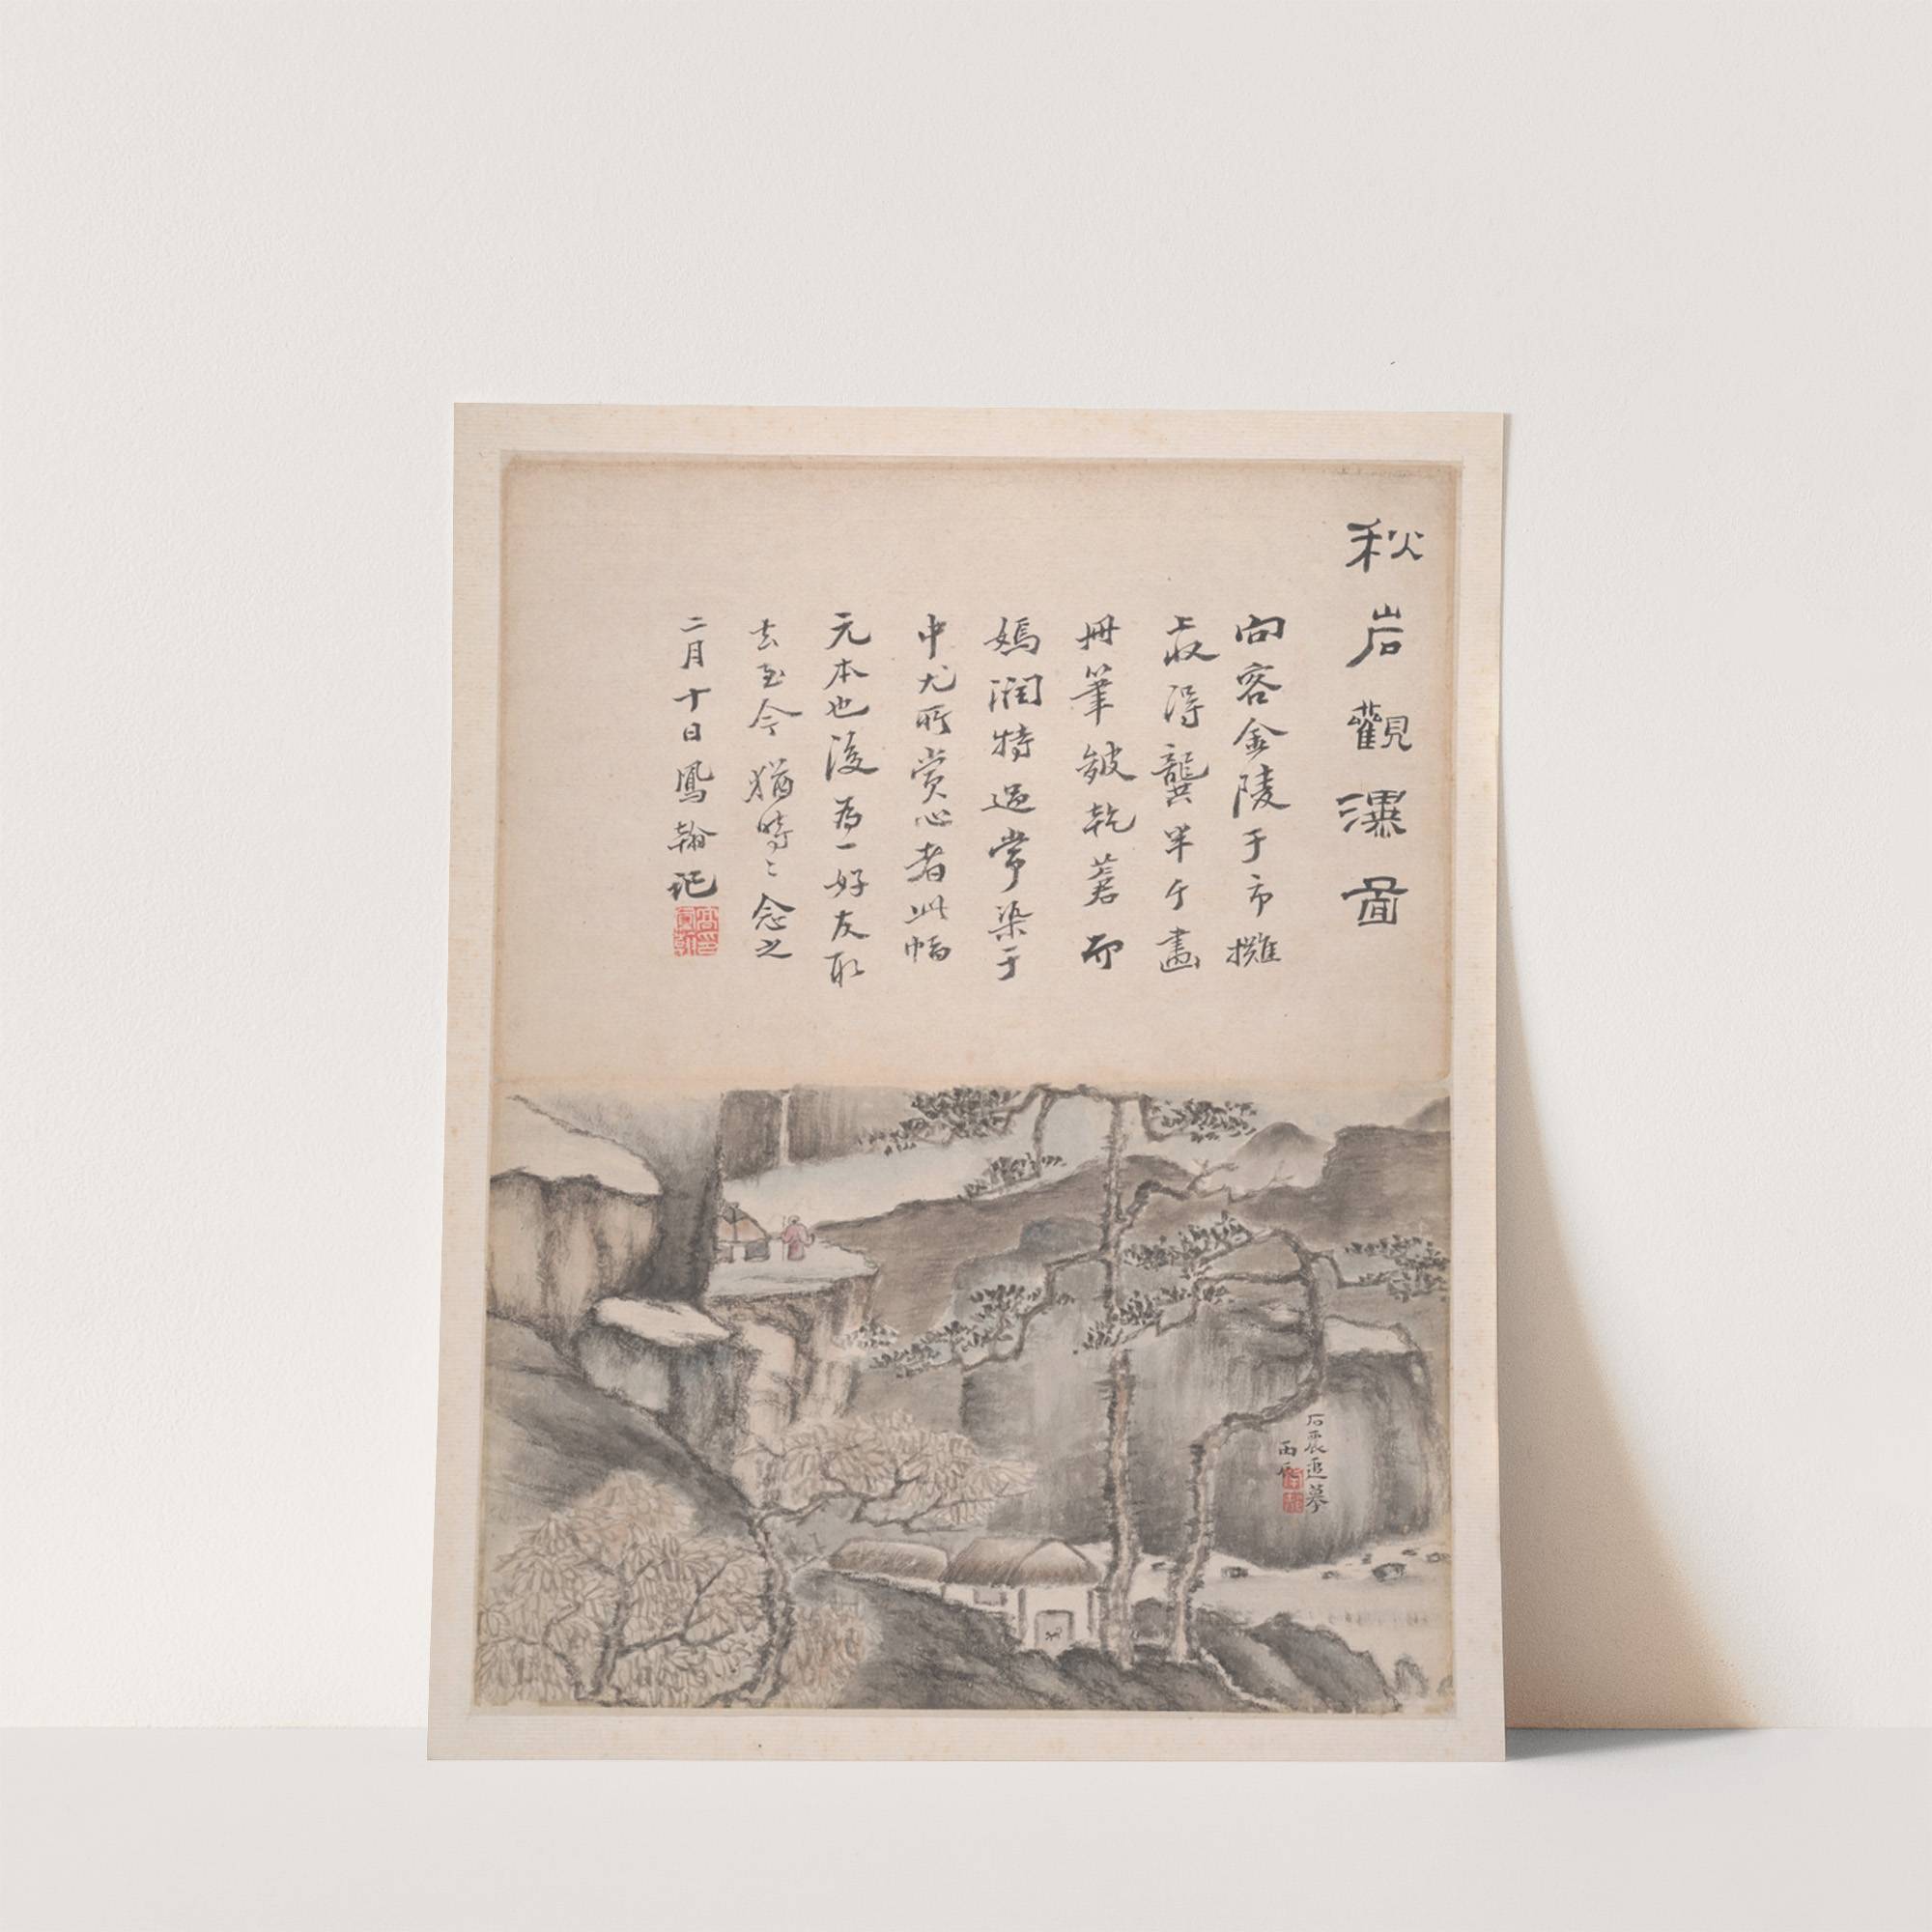 秋岩觀瀑圖
向客金陵于市攤
上收得龔半千畫
冊筆皴乾蒼而
嫣潤特過常染于
中尤所賞心者此幅
元本也後為一好友取
去至今猶時〻念之
二月十日鳳翰記
追摹
丙辰